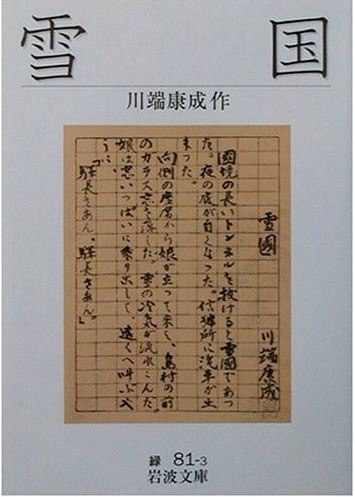 雪国
川端康成作
雪國
川端康成
國境の長いトンネルを抜けると雪國であつ
た。夜の底が白くなつた。信號所に汽車が止
まつた。
向側の座席から娘が立つて来て、島村の前
のガラス窓を落した。雪の冷氣が流れこんだ。
娘は窓いつぱいに乗り出して、遠くへ叫ぶや
うに、
「駅長さあん、駅長さあん。」
緑 81-3
岩波文庫